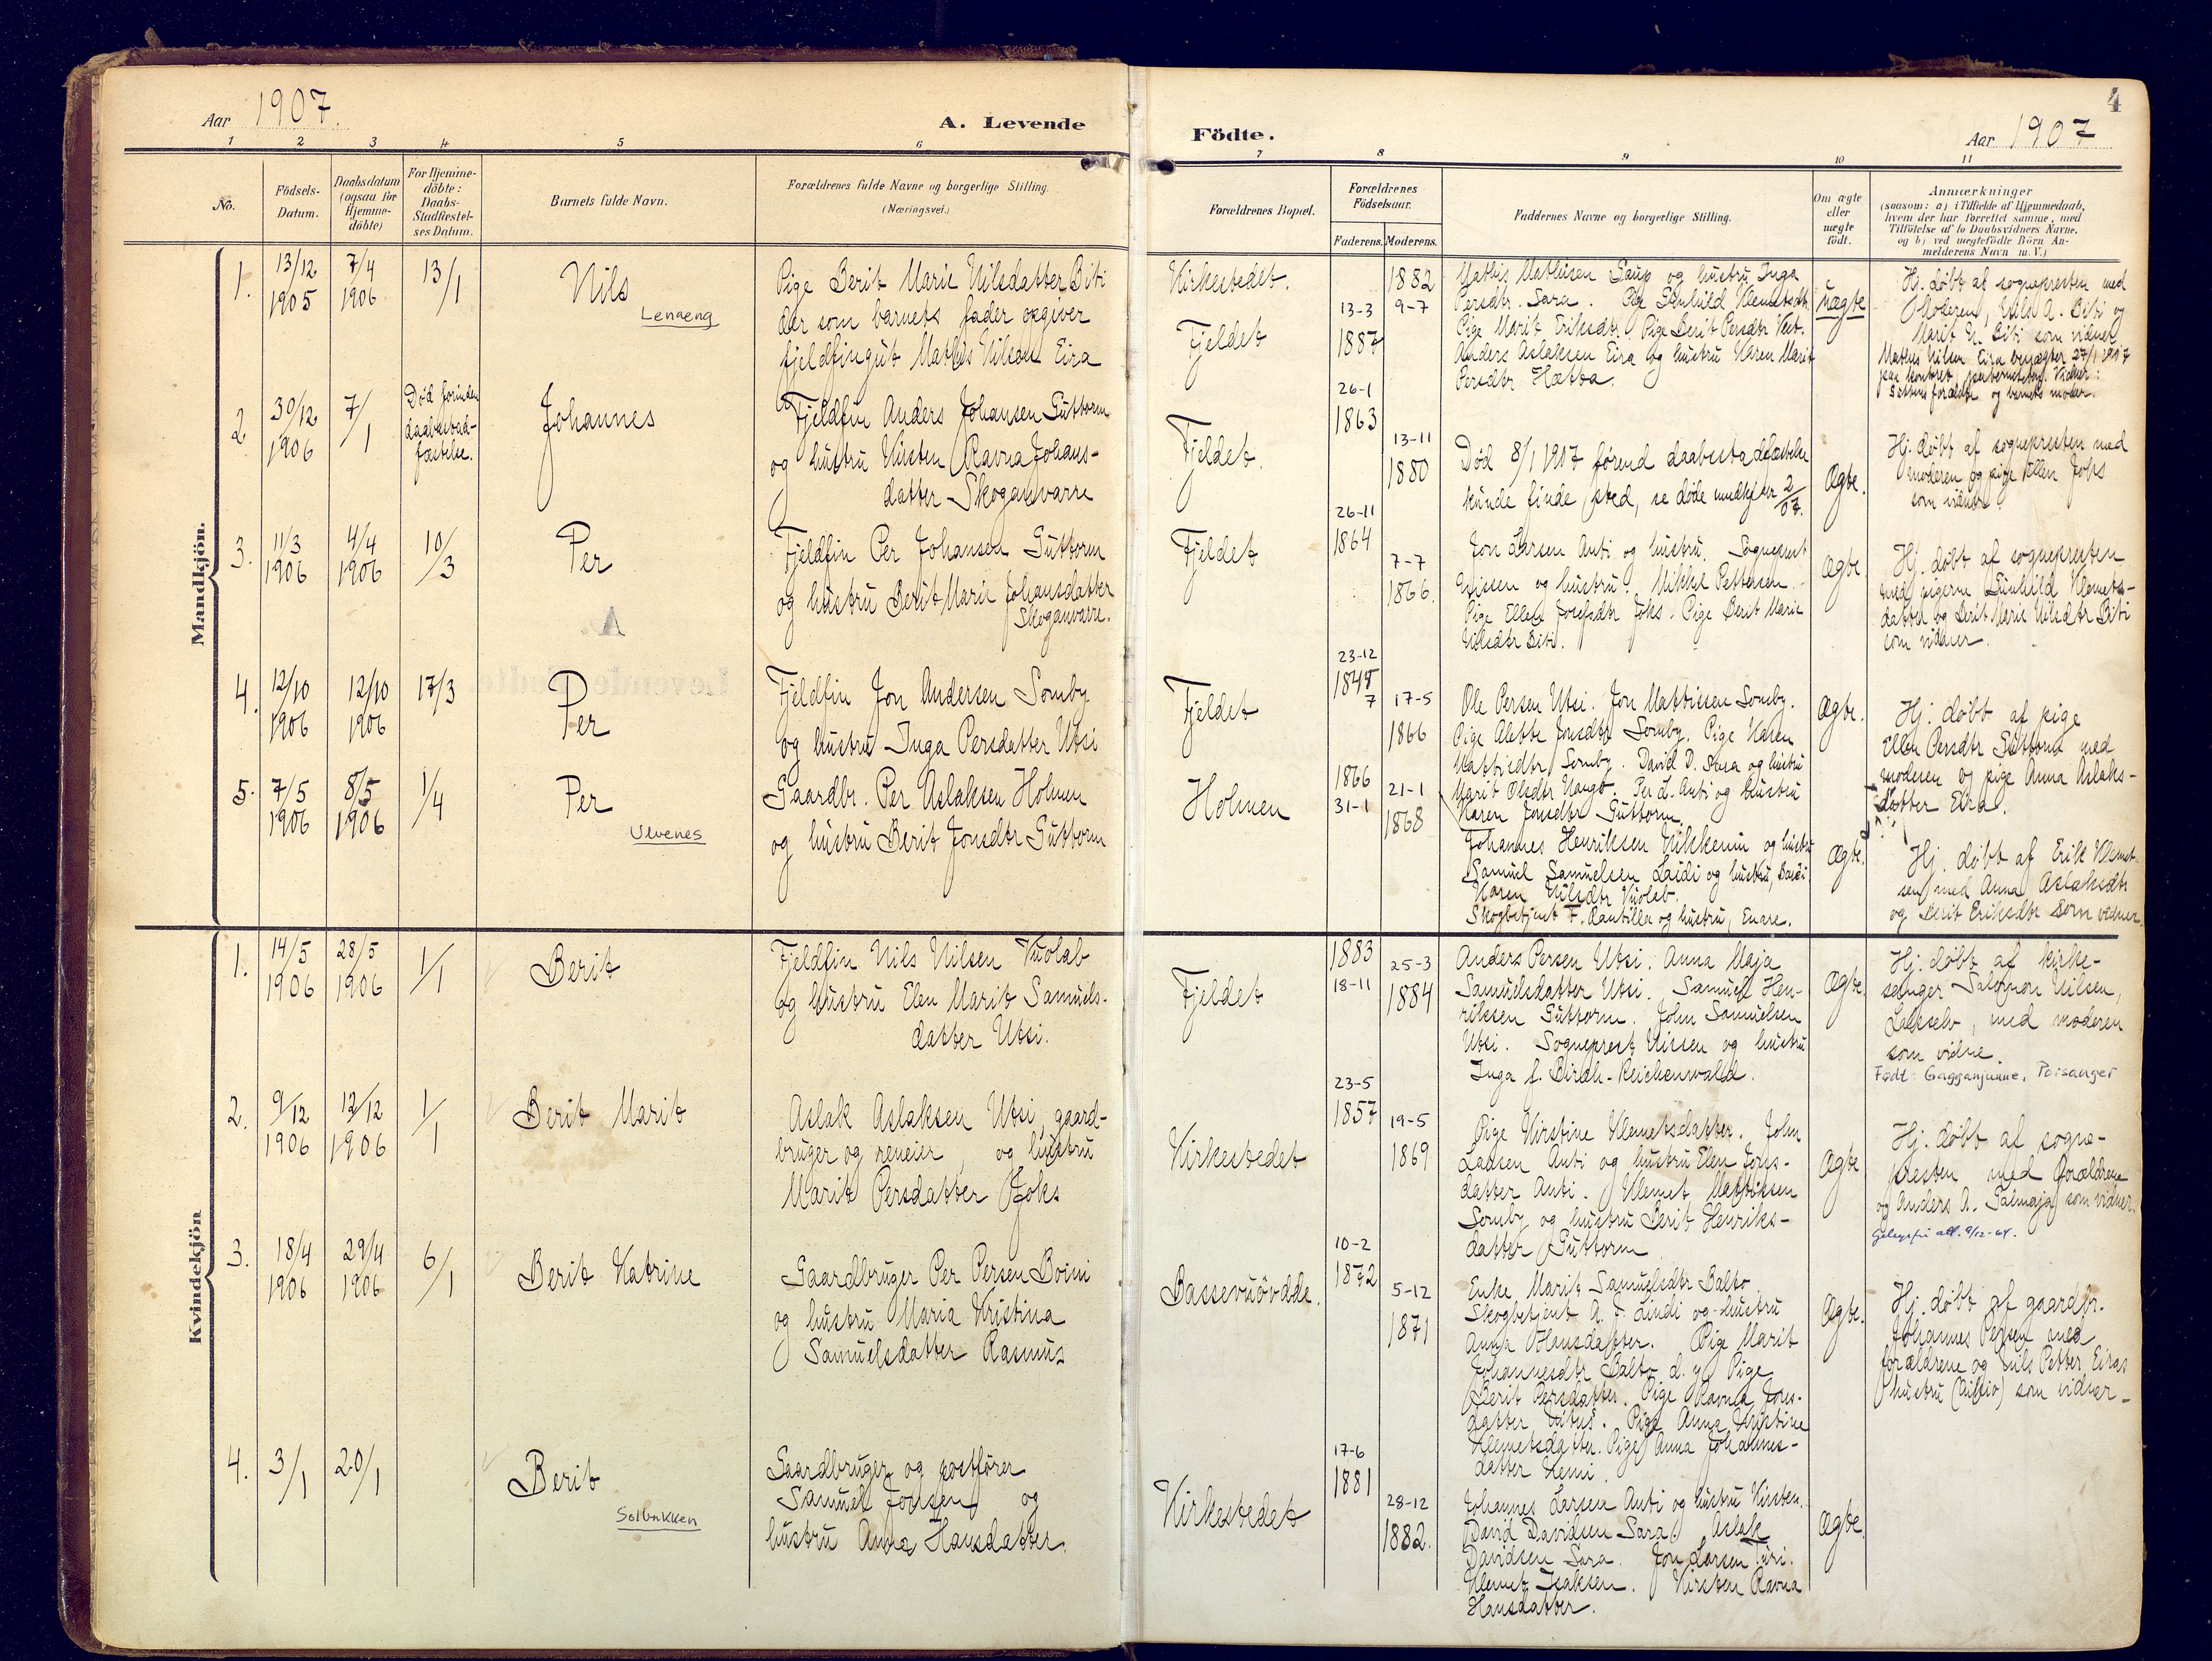 Aar 1907.
A. Levende
1 2 3 4 5 6
No.
Födsels-
Datum.
Daabsdatum
(ogsaa for
Hjemme-
döbte)
For Hjemme-
döbte:
Daabs-
Stadfæstel-
ses Datum.
Barnets fulde Navn.
Forældrenes fulde Navne og borgerlige Stilling.
(Næringsvei.)
Mandkjön.
1.
13/12
1905
7/4
1906
13/1
Nils
Leneng
Pige Berit Marie Nilsdatter Biti
der som barnets fader opgiver
fjeldfingut Mathis Nilsen Eira
2
30/12
1906
7/1
Død forinden
daabsstad-
fæstelse.
Johannes
Fjeldfin Anders Johansen Guttorm
og hustru Kirsten Ravna Johans-
datter Skoganvarre
3.
11/3
1906
4/4
1906
10/3
Per
Fjeldfin Per Johansen Guttorm
og hustru Berit Marie Johansdatter
Skoganvarre.
4.
12/10
1906
12/10
1906
17/3
Per
Fjeldfin Jon Andersen Somby
og hustru Inga Persdatter Utsi
5.
7/5
1906
8/5
1906
1/4
Per
Ulvenes
Gaardbr. Per Aslaksen Holmen
og hustru Berit Jonsdtr Guttorm
Kvindekjön
1.
14/5
1906
28/5
1906
1/1
Berit
Fjeldfin Nils Nilsen Vuolab
og hustru Elen Marit Samuels-
datter Utsi.
2.
9/12
1906
12/12
1906
1/1
Berit Marit
Aslak Aslaksen Utsi, gaard-
bruger og reneier, og hustru
Marit Persdatter Joks
3.
18/4
1906
29/4
1906
6/1
Berit Katrine
Gaardbruger Per Persen Boini
og hustru Maria Kristina
Samuelsdatter Rasmus
4.
3/1
20/1
Berit
Solbakken
Gaardbruger og postfører
Samuel Jonsen og
hustru Anna Hansdatter.
4
Födte.
Aar 1907
7 8 9 10 11
Forældrenes Bopæl.
Forældrenes
Födselsaar.
Faderens. Moderens.
Faddernes Navne og borgerlige Stilling.
Om ægte
eller
uægte
födt.
Anmærkninger
(saasom: a) i Tilfælde af Hjemmedaab,
hvem der har forrettet samme, med
Tilföielse af to Daabsvidners Navne.
og b) ved uegtefödte Börn An-
melderens Navn m. V.)
Kirkestedet.
Fjeldet
13-3
1887
1882
9-7
Mathis Mathisen Gaup og hustru Inga
Persdtr. Sara. Pige Gunhild Klemetsdtr
Pige Marit Eriksdtr. Pige Berit Persdtr
Anders Aslaksen Eira og hustru Karen Marit
Persdtr Hætta.
uægte
Hj. døbt af sognepresten med
Moderen, Nils A. Biti og
Marit N. Biti som vidner.
Mathis Nilsen Eira benægter 27/1 1917
paa kontoret paterniteten. Vidner:
forældre og barnets moder.
Fjeldet.
26-1
1863
13-11
1880
Død 8/1 1907 førend daabsstadfæstelse
kunde finde sted, se døde mandkjøn 2/07.
Ægte.
Hj. døbt af sognepresten med
moderen og pige Ellen Joks
som vidner
Fjeldet
26-11
1864
7-7
1866.
Jon Larsen Anti og hustru. Sogneprest
Nissen og hustru. Mikkel Pettersen.
Pige Ellen Josefsdtr Joks. Pige Berit Marie
Nilsdtr Biti.
Ægte.
Hj. døbt af sognepresten
med pigerne Gunhild Klemets-
datter og Berit Marie Nilsdtr Biti
som vidner.
Fjeldet
23-12
1845
7
17-5
1866
Ole Persen Utsi. Jon Mattisen Somby.
Pige Aletta Jonsdtr Somby. Pige Karen
Mattisdtr Somby. David D. Sara og hustru
Marit Olsdtr Nango. Per L. Anti og hustru
Karen Jonsdtr Guttorm.
Ægte.
Hj. døbt af pige
Ellen Persdtr Guttorm med
moderen og pige Anna Aslaks-
datter Eira.
Holmen
1866
31-1
21-1
1868
Johannes Henriksen Nikkenin og hustru
Samuel Samuelsen Laidi og hustru,
Karen Nilsdtr Vuolab.
Skogbetjent F. Rantilla og hustru, Enare.
Ægte.
Hj. døbt af Erik Klemet-
sen med Anna Aslaksdtr
og Berit Eriksdtr som vidner.
Fjeldet
1883
18-11
25-3
1884
Anders Persen Utsi. Anna Maja
Samuelsdatter Utsi. Samuel Hen-
riksen Guttorm. John Samuelsen
Utsi. Sogneprest Nissen og hustru
Inga f. Birch-Reichenwald.
Ægte.
Hj. døbt af kirke-
sanger Salomon Nilsen,
Lakselv, med moderen
som vidne.
Født: Gagganjunne, Porsanger
Kirkestedet
23-5
1857
19-5
1869
Pige Kirstine Klemetsdatter. John
Larsen Anti og hustru Elen Jons-
datter Anti. Klemet Mattisen
Somby og hustru Berit Henriks-
datter Guttorm
Ægte
Hj. døbt af sogne-
presten med forældrene
og Anders A. som vidner.
att. 9/12-64.
Bassevuovdde.
10-2
1872
5-12
1871
Enke Marit Samuelsdtr Balto
Skogbetjent A. J. Lindi og hustru
Anna Hansdatter. Pige Marit
Johannesdtr Balto d. y. Pige
Berit Persdatter. Pige Ravna Jons-
datter. Pige Anna Kristine
Klemetsdatter. Pige Anna Johannes-
datter Kemi.
Ægte.
Hj. døbt af gaardbr.
Johannes Persen med
forældrene og Nils Petter Eiras
hustru som vidner.
Kirkestedet
17-6
1881
28-12
1882.
Johannes Larsen Anti og hustru Kirsten.
David Davidsen Sara. Aslak
Davidsen Sara. Jon Larsen Turi.
Klemet Isaksen. Kirsten Ravna
Hansdatter.
Ægte.